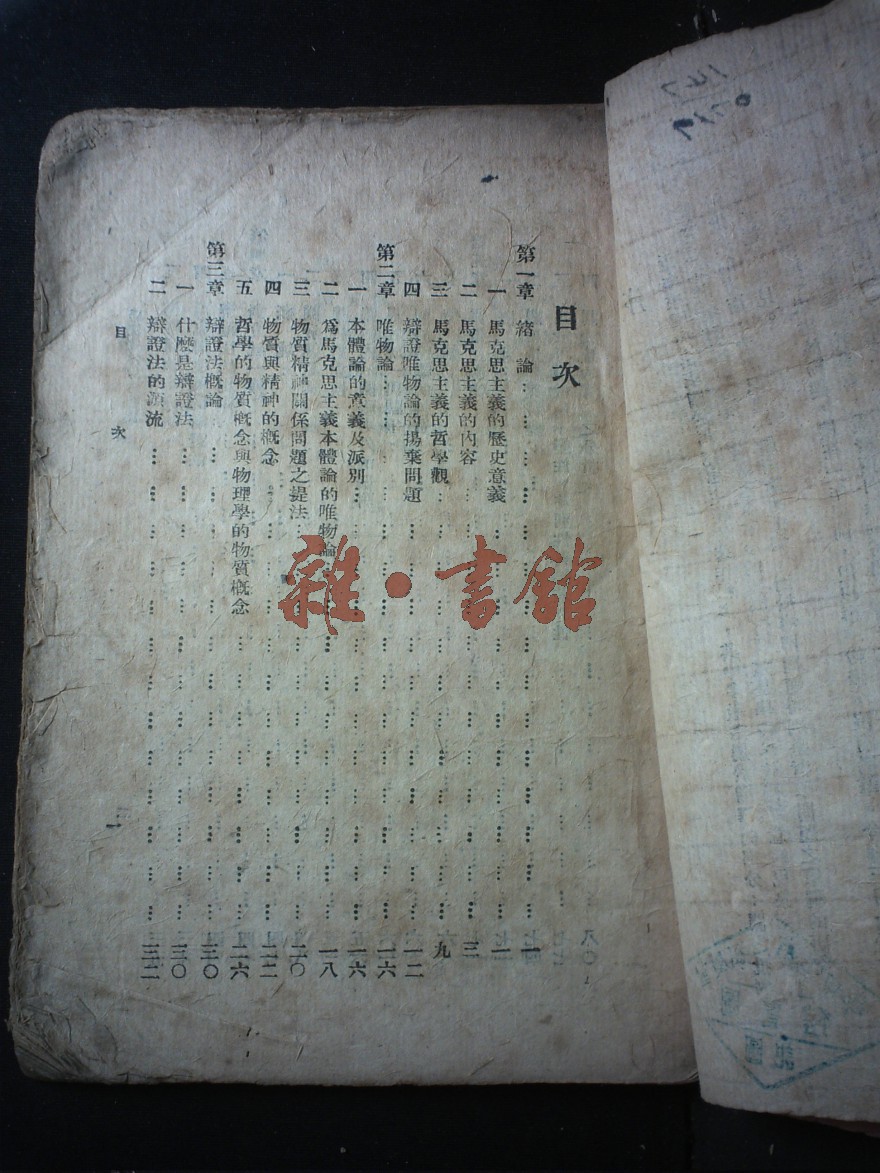 目次
第一章 緒論…………一
一 馬克思主義的歷史意義…………一
二 馬克思主義的內容…………三
三 馬克思主義的哲學觀…………九
四 辯證唯物論的揚棄問題…………一二
第二章 唯物論…………一六
一 本體論的意義及派別…………一六
二 爲馬克思主義本體論的唯物論…………一八
三 物質精神關係問題之提法…………二〇
四 物質與精神的槪念…………二二
五 哲學的物質槪念與物理學的物質槪念…………二六
第三章 辯證法槪論…………三〇
一 什麼是辯證法…………三〇
二 辯證法的源流…………三二
目次
一
雜·書館